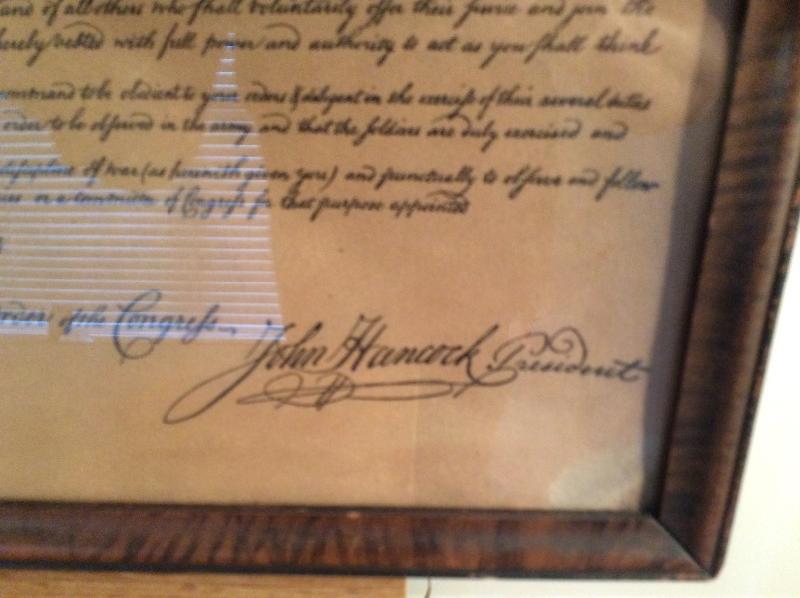 and of all others who shall voluntarily offer their service and join the
hereby vested with full power and authority to act as you shall think
command to be obedient to your orders & diligent in the exercise of their several duties
order to be observed in the army and that the soldiers are duly exercised and
discipline of war (as herewith given you) and punctually to observe and follow
or a committee of Congress for that purpose appointed
order of the Congress,
John Hancock President